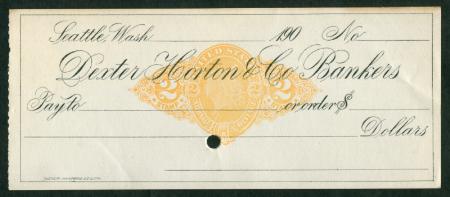 Seattle, Wash 190 No
Dexter Horton & Co. Bankers
Pay to or order $
Dollars
2 UNITED STATES 2